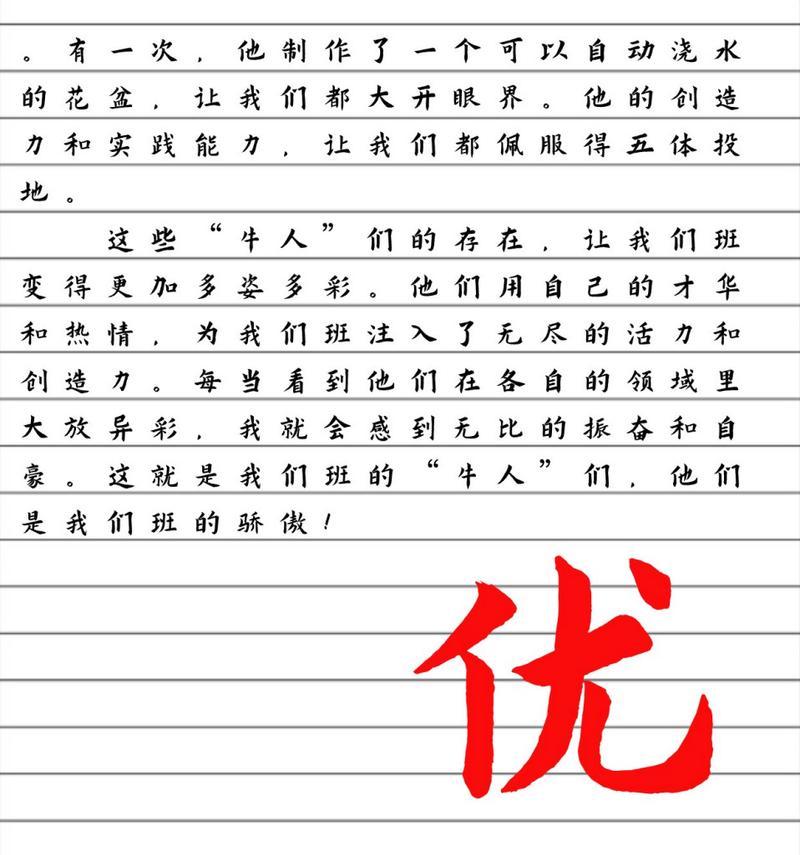 。有一次，他制作了一个可以自动浇水
的花盆，让我们都大开眼界。他的创造
力和实践能力，让我们都佩服得五体投
地。
这些“牛人”们的存在，让我们班
变得更加多姿多彩。他们用自己的才华
和热情，为我们班注入了无尽的活力和
创造力。每当看到他们在各自的领域里
大放异彩，我就会感到无比的振奋和自
豪。这就是我们班的“牛人”们，他们
是我们班的骄傲！
优